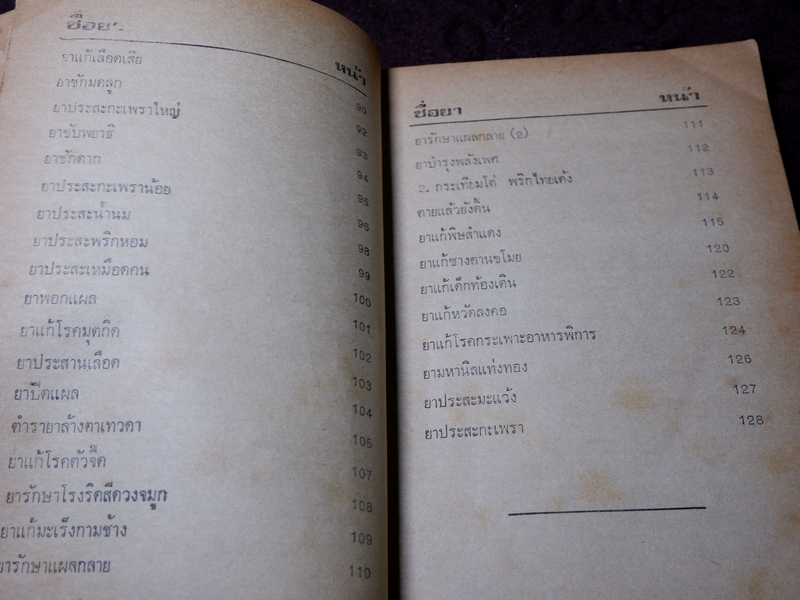 ชื่อยา หน้า
ยาแก้เลือดเสีย 90
ยาชักมดลูก 92
ยาประสะกะเพราใหญ่ 93
ยาขับพยาธิ 94
ยาชักดาก 95
ยาประสะกะเพราน้อย 96
ยาประสะน้ำนม 98
ยาประสะพริกหอม 99
ยาประสะเหมือดคน 100
ยาพอกแผล 101
ยาแก้โรคมุตกิด 102
ยาประสานเลือด 103
ยาปิดแผล 104
ตำรายาล้างตาเทวดา 105
ยาแก้โรคตัวจี๊ด 107
ยารักษาโรงริดสีดวงจมูก 108
ยาแก้มะเร็งกามช้าง 109
ยารักษาแผลกลาย 110
ชื่อยา หน้า
ยารักษาแผลกลาย (2) 111
ยาบำรุงพลังเพศ 112
2. กระเทียมโด่ พริกไทยเด้ง 113
ตายแล้วยังดิ้น 114
ยาแก้พิษสำแดง 115
ยาแก้ซางตานขโมย 120
ยาแก้เด็กท้องเดิน 122
ยาแก้หวัดลงคอ 123
ยาแก้โรคกระเพาะอาหารพิการ 124
ยามหานิลแท่งทอง 126
ยาประสะมะแว้ง 127
ยาประสะกะเพรา 128